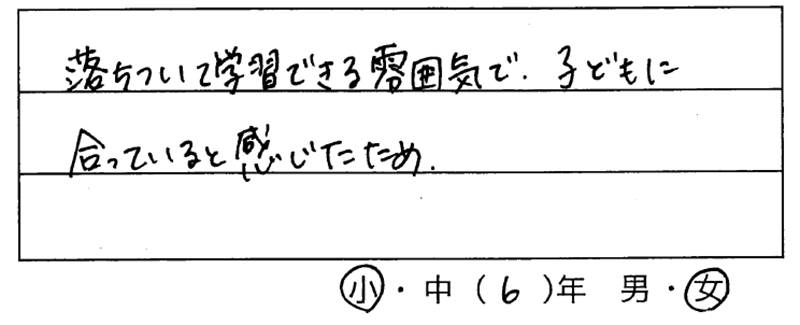 落ちついて学習できる雰囲気で、子どもに
合っていると感じたため.
小・中(6)年 男・女